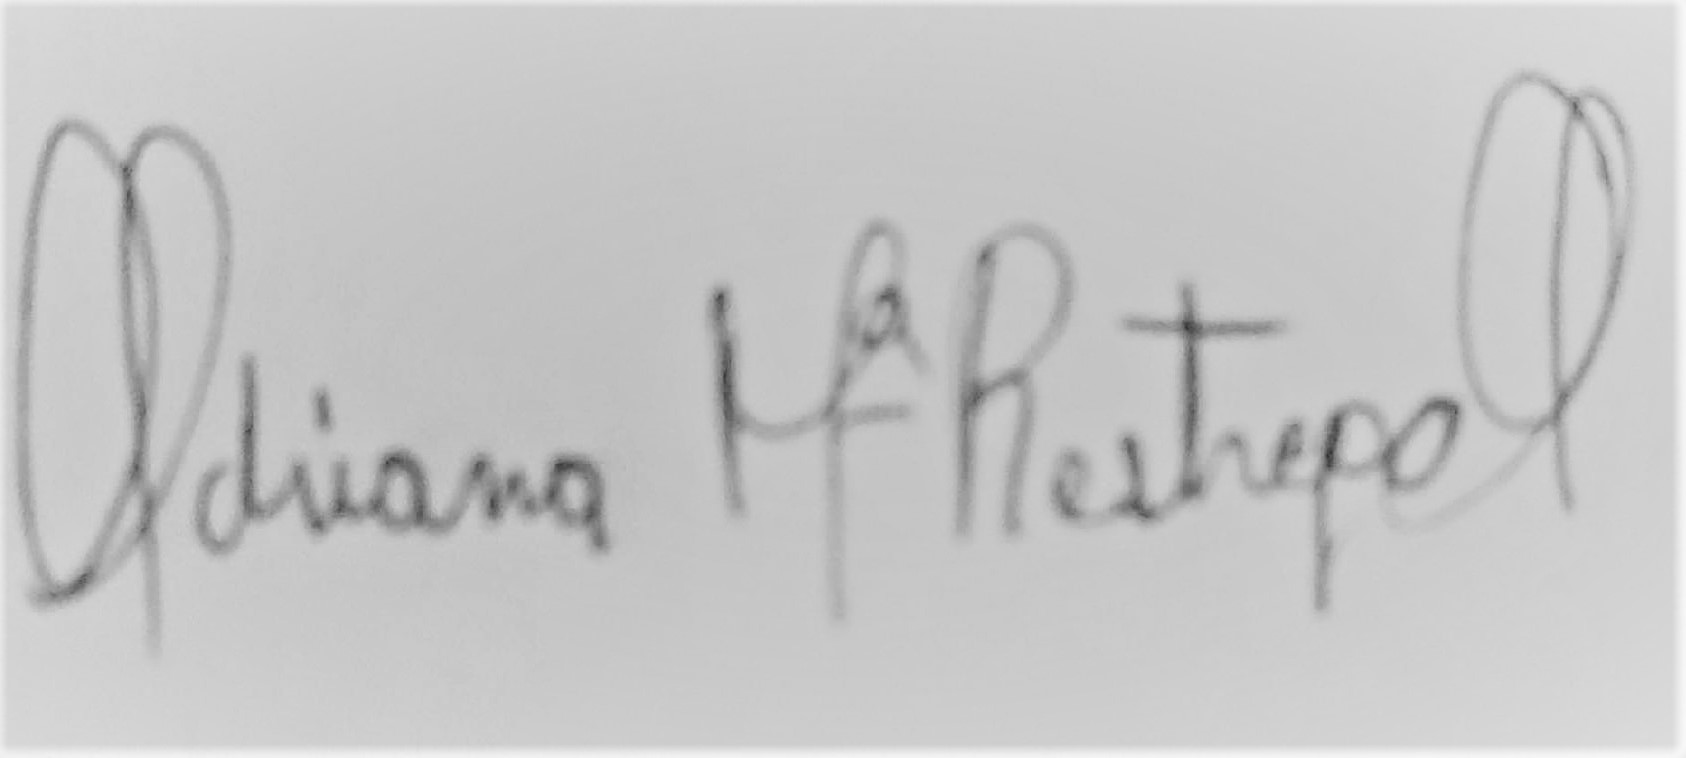 Adriana Mª Restrepo